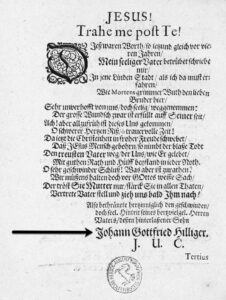 JESUS!
Trahe me post Te!
So seynd Worth / so seynd gleich vor vie-
ren Jahren /
Mein seliger Vater betrübet schriebe
mir /
In jene Linden Stadt / als ich da must er-
fahren /
Wie Mortens grimmer Wuth den lieben
Bruder hier /
Sehr unverhofft von uns / doch seelig / weggenommen:
Der grosse Wundsch zwar ist erfüllt auff Seuer seit /
Ach! aber allzufrüh ist dieses Uns gekommen /
O schwerer Hertzens-Riß! O trauervolle Zeit!
Da jetzt die Christenheit in froher Freude schwebet /
Daß JEsus Mensch gebohren / so nimbt der blasse Todt
Den treusten Vater weg der Uns / wie Er gelebet /
Mit guthen Rath und Hülff beystand in der Noth.
O sehr geschwinder Schluß! Was aber ist zu machen?
Wir müssens halten doch vor GOttes weise Sach /
Der tröst Sie Mutter nur / stärck Sie in allen Thaten /
Vertrete Vater stell und zieh uns bald Ihm nach!
Also bethränete hertzinniglich den geschwinden /
doch seel. Hintrit seines hertzgel. Herren
Vaters / dessen hinterlassener Sohn
Johann Gottfried Hilliger.
J. U. C.
Tertius